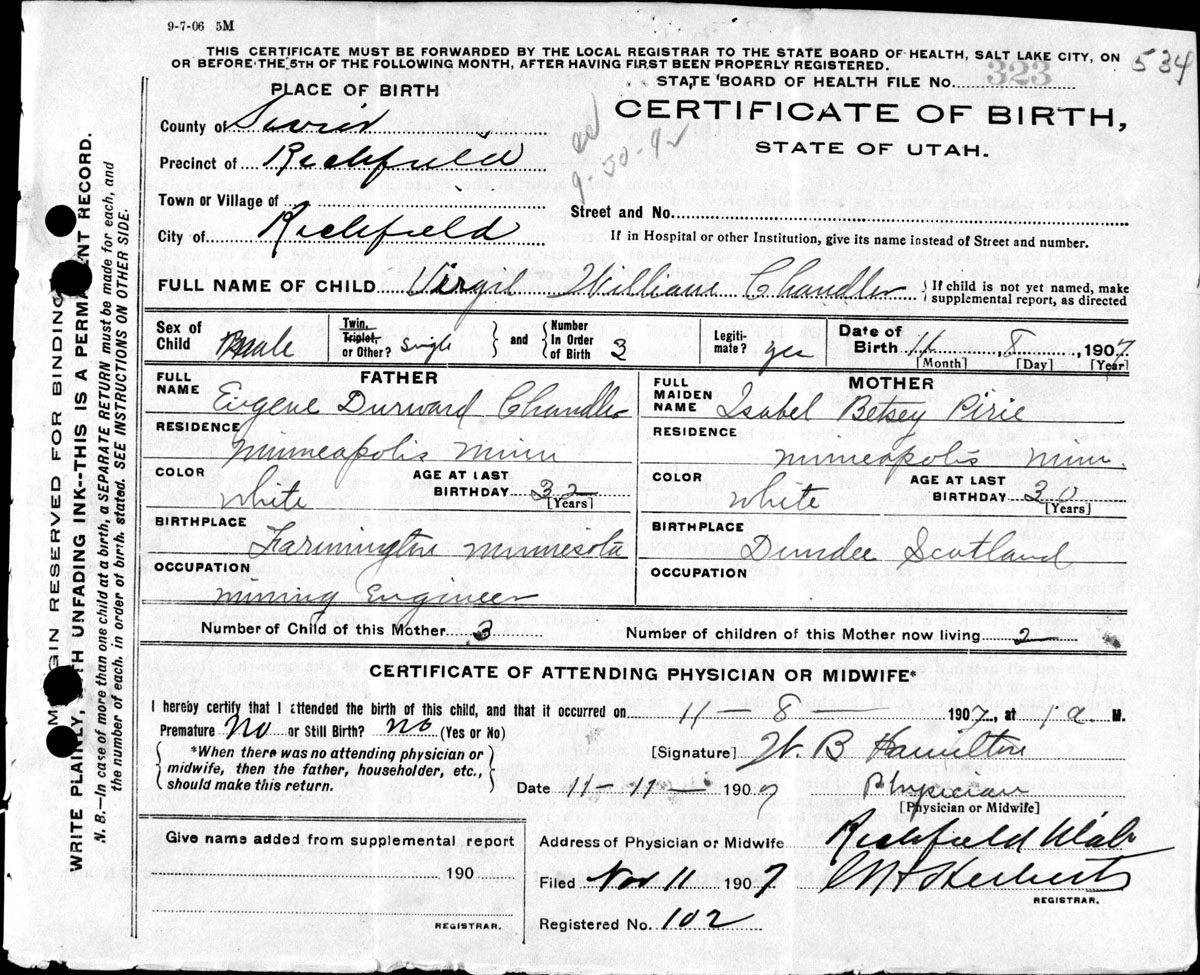 9-7-06 5M
THIS CERTIFICATE MUST BE FORWARDED BY THE LOCAL REGISTRAR TO THE STATE BOARD OF HEALTH, SALT LAKE CITY, ON
OR BEFORE THE 5TH OF THE FOLLOWING MONTH, AFTER HAVING FIRST BEEN PROPERLY REGISTERED.
534
STATE BOARD OF HEALTH FILE No. 323
PLACE OF BIRTH
CERTIFICATE OF BIRTH,
STATE OF UTAH.
County of Sevier
Precinct of Richfield
9-30-42
Town or Village of
Street and No.
City of Richfield
If in Hospital or other Institution, give its name instead of Street and number.
FULL NAME OF CHILD Virgil William Chandler { If child is not yet named, make
supplemental report, as directed
Sex of Child Male
Twin, Triplet, or Other? Single } and { Number In Order of Birth 3
Legitimate? yes
Date of Birth 11 8, 1907
[Month] [Day] [Year]
FATHER
FULL NAME Eugene Durward Chandler
MOTHER
FULL MAIDEN NAME Isabel Betsey Pirie
RESIDENCE Minneapolis Minn
RESIDENCE Minneapolis Minn.
COLOR White AGE AT LAST BIRTHDAY 32 [Years]
COLOR White AGE AT LAST BIRTHDAY 30 [Years]
BIRTHPLACE Farmington Minnesota
BIRTHPLACE Dundee Scotland
OCCUPATION Mining Engineer
OCCUPATION
Number of Child of this Mother 3
Number of children of this Mother now living 2
CERTIFICATE OF ATTENDING PHYSICIAN OR MIDWIFE*
I hereby certify that I attended the birth of this child, and that it occurred on 11 - 8 - 1907, at 1 a M.
Premature No or Still Birth? no (Yes or No)
*When there was no attending physician or
midwife, then the father, householder, etc.,
should make this return.
[Signature] W. B Hamilton
Date 11-11- 1907 Physician
[Physician or Midwife]
Give name added from supplemental report
190
REGISTRAR.
Address of Physician or Midwife Richfield Utah
Filed Nov 11 1907
REGISTRAR.
Registered No. 102
MARGIN RESERVED FOR BINDING
WRITE PLAINLY, WITH UNFADING INK--THIS IS A PERMANENT RECORD.
N. B.—In case of more than one child at a birth, a SEPARATE RETURN must be made for each, and
the number of each, in order of birth, stated. SEE INSTRUCTIONS ON OTHER SIDE.